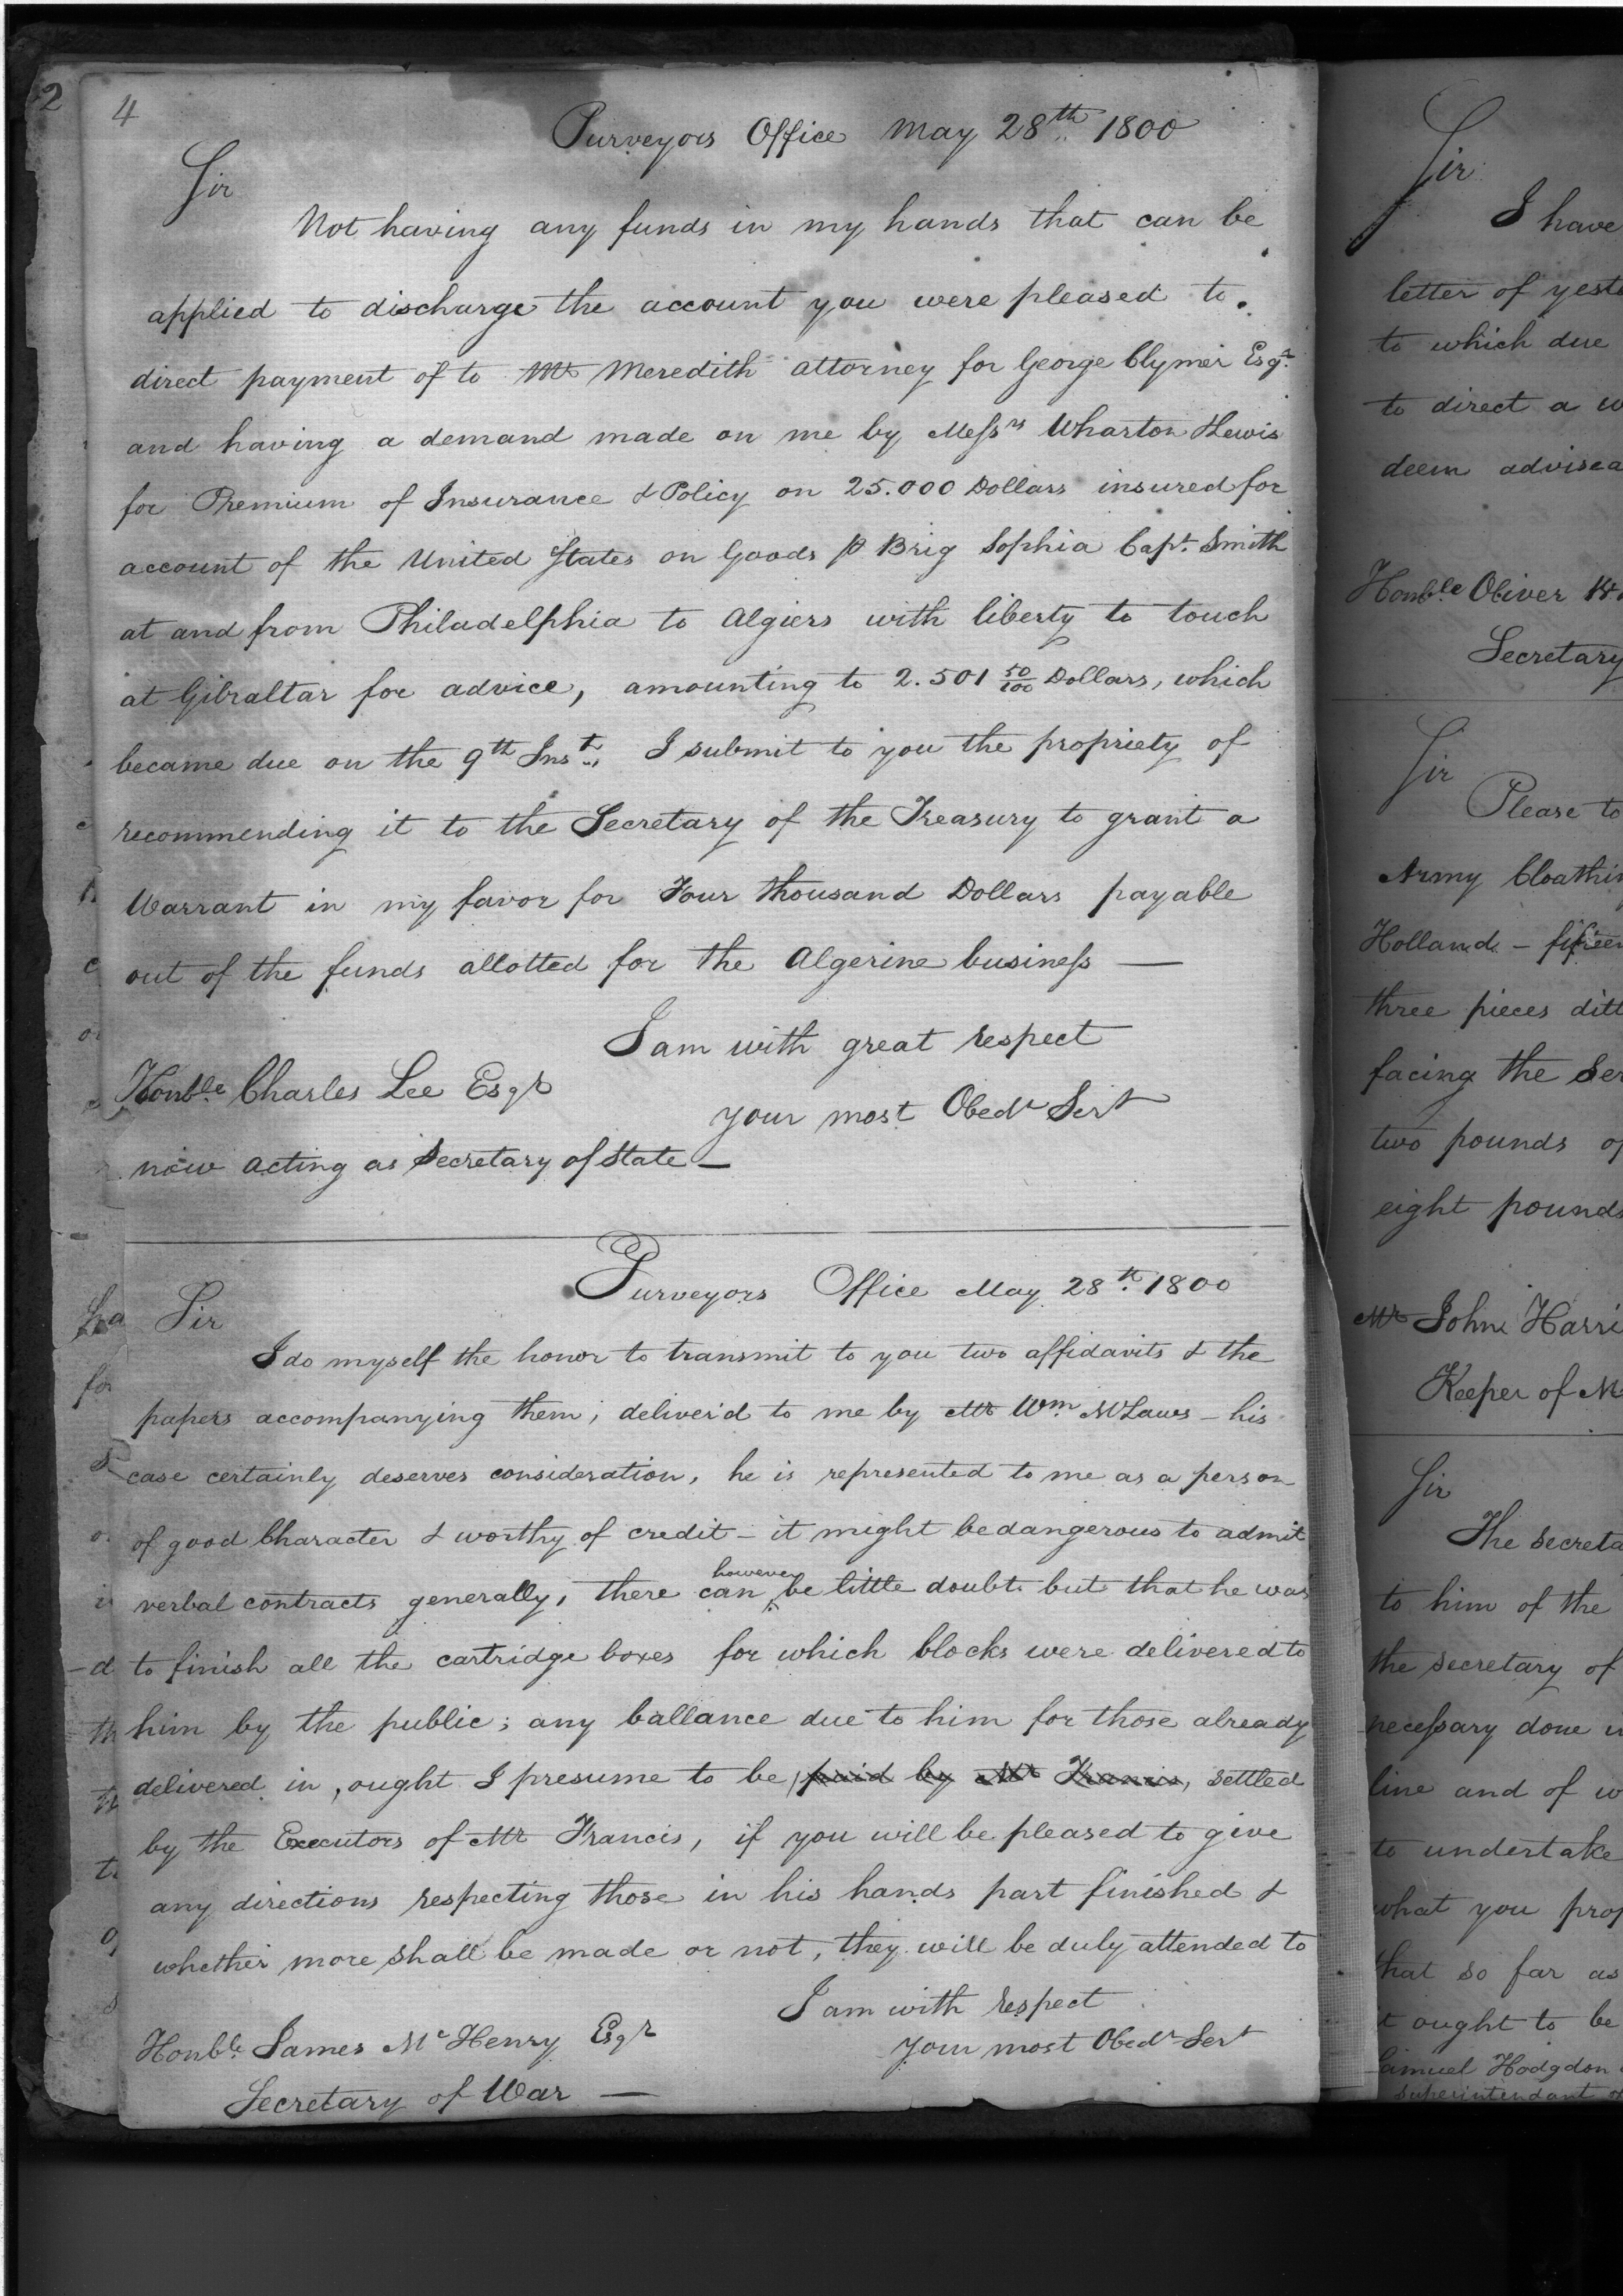 2
4
Purveyors Office May 28th 1800
Sir
Not having any funds in my hands that can be
applied to discharge the account you were pleased to
direct payment of to Mr Meredith attorney for George Clymer Esqr
and having a demand made on me by Messrs Wharton & Lewis
for Premium of Insurance & Policy on 25.000 Dollars insured for
account of the United States on Goods p Brig Sophia Capt. Smith
at and from Philadelphia to Algiers with liberty to touch
at Gibraltar for advice, amounting to 2.501 50/100 Dollars, which
became due on the 9th Inst., I submit to you the propriety of
recommending it to the Secretary of the Treasury to grant a
Warrant in my favor for Four thousand Dollars payable
out of the funds allotted for the Algerine business —
I am with great respect
Honble Charles Lee Esqr
your most Obedt Sert
now acting as Secretary of State —
Purveyors Office May 28th 1800
Sir
I do myself the honor to transmit to you two affidavits & the
papers accompanying them, deliver'd to me by Mr Wm. McLaws – his
case certainly deserves consideration, he is represented to me as a person
of good Character & worthy of credit – it might be dangerous to admit
verbal contracts generally, there can however be little doubt but that he was
to finish all the cartridge boxes for which blocks were delivered to
him by the public; any ballance due to him for those already
delivered in, ought I presume to be paid by Mr Francis, settled
by the Executors of Mr Francis, if you will be pleased to give
any directions respecting those in his hands part finished &
whether more shall be made or not, they will be duly attended to
I am with respect
Honble James McHenry Esqr
your most Obedt Sert
Secretary of War —
Sir
I have
letter of
to which due
to direct a
deem
Honble Oliver
Secretary
Sir
Please to
Army
Holland –
three pieces
facing the
two pounds
eight pounds
Mr John
Keeper of
Sir
The
to him of the
the secretary of
necessary done
line and of
to undertake
what you
that so far as
it ought to be
Samuel Hodgdon
Superintendant